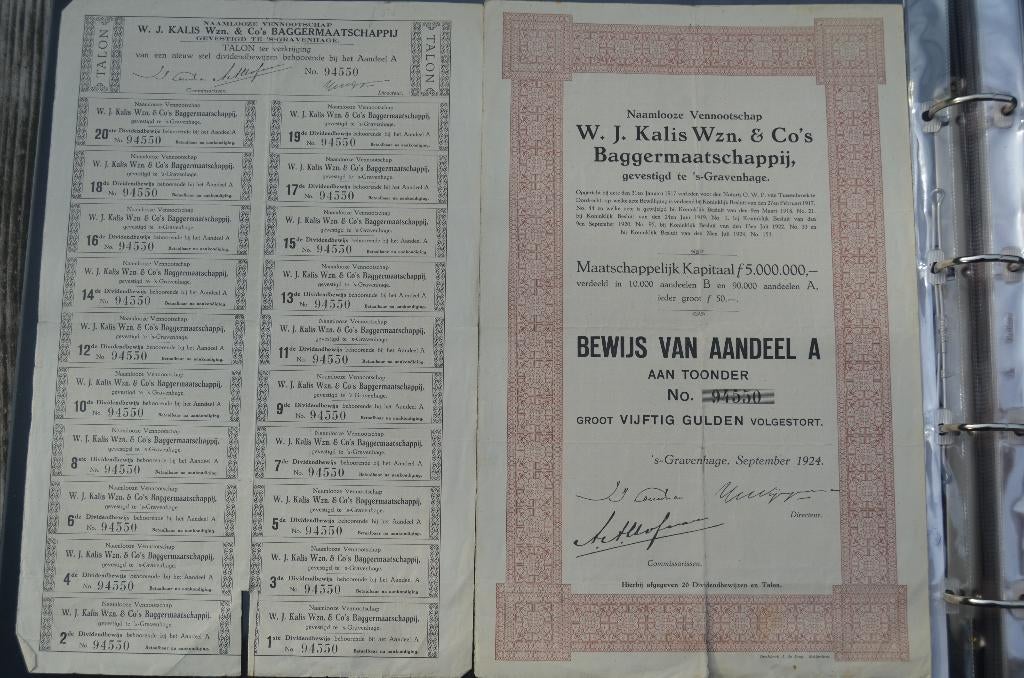 TALON
NAAMLOOZE VENNOOTSCHAP
W. J. KALIS Wzn. & Co's BAGGERMAATSCHAPPIJ
GEVESTIGD TE 'S-GRAVENHAGE.
TALON ter verkrijging
van een nieuw stel dividendbewijzen behoorende bij het Aandeel A
No. 94550
Commissarissen. Directeur.
TALON
Naamlooze Vennootschap
W. J. Kalis Wzn. & Co's Baggermaatschappij,
gevestigd te 's-Gravenhage.
20ste Dividendbewijs behoorende bij het Aandeel A
No. 94550 Betaalbaar na aankondiging.
Naamlooze Vennootschap
W. J. Kalis Wzn. & Co's Baggermaatschappij,
gevestigd te 's-Gravenhage.
19de Dividendbewijs behoorende bij het Aandeel A
No. 94550 Betaalbaar na aankondiging.
Naamlooze Vennootschap
W. J. Kalis Wzn. & Co's Baggermaatschappij,
gevestigd te 's-Gravenhage.
18de Dividendbewijs behoorende bij het Aandeel A
No. 94550 Betaalbaar na aankondiging.
Naamlooze Vennootschap
W. J. Kalis Wzn. & Co's Baggermaatschappij,
gevestigd te 's-Gravenhage.
17de Dividendbewijs behoorende bij het Aandeel A
No. 94550 Betaalbaar na aankondiging.
Naamlooze Vennootschap
W. J. Kalis Wzn. & Co's Baggermaatschappij,
gevestigd te 's-Gravenhage.
16de Dividendbewijs behoorende bij het Aandeel A
No. 94550 Betaalbaar na aankondiging.
Naamlooze Vennootschap
W. J. Kalis Wzn. & Co's Baggermaatschappij,
gevestigd te 's-Gravenhage.
15de Dividendbewijs behoorende bij het Aandeel A
No. 94550 Betaalbaar na aankondiging.
Naamlooze Vennootschap
W. J. Kalis Wzn. & Co's Baggermaatschappij,
gevestigd te 's-Gravenhage.
14de Dividendbewijs behoorende bij het Aandeel A
No. 94550 Betaalbaar na aankondiging.
Naamlooze Vennootschap
W. J. Kalis Wzn. & Co's Baggermaatschappij,
gevestigd te 's-Gravenhage.
13de Dividendbewijs behoorende bij het Aandeel A
No. 94550 Betaalbaar na aankondiging.
Naamlooze Vennootschap
W. J. Kalis Wzn. & Co's Baggermaatschappij,
gevestigd te 's-Gravenhage.
12de Dividendbewijs behoorende bij het Aandeel A
No. 94550 Betaalbaar na aankondiging.
Naamlooze Vennootschap
W. J. Kalis Wzn. & Co's Baggermaatschappij,
gevestigd te 's-Gravenhage.
11de Dividendbewijs behoorende bij het Aandeel A
No. 94550 Betaalbaar na aankondiging.
Naamlooze Vennootschap
W. J. Kalis Wzn. & Co's Baggermaatschappij,
gevestigd te 's-Gravenhage.
10de Dividendbewijs behoorende bij het Aandeel A
No. 94550 Betaalbaar na aankondiging.
Naamlooze Vennootschap
W. J. Kalis Wzn. & Co's Baggermaatschappij,
gevestigd te 's-Gravenhage.
9de Dividendbewijs behoorende bij het Aandeel A
No. 94550 Betaalbaar na aankondiging.
Naamlooze Vennootschap
W. J. Kalis Wzn. & Co's Baggermaatschappij,
gevestigd te 's-Gravenhage.
8ste Dividendbewijs behoorende bij het Aandeel A
No. 94550 Betaalbaar na aankondiging.
Naamlooze Vennootschap
W. J. Kalis Wzn. & Co's Baggermaatschappij,
gevestigd te 's-Gravenhage.
7de Dividendbewijs behoorende bij het Aandeel A
No. 94550 Betaalbaar na aankondiging.
Naamlooze Vennootschap
W. J. Kalis Wzn. & Co's Baggermaatschappij,
gevestigd te 's-Gravenhage.
6de Dividendbewijs behoorende bij het Aandeel A
No. 94550 Betaalbaar na aankondiging.
Naamlooze Vennootschap
W. J. Kalis Wzn. & Co's Baggermaatschappij,
gevestigd te 's-Gravenhage.
5de Dividendbewijs behoorende bij het Aandeel A
No. 94550 Betaalbaar na aankondiging.
Naamlooze Vennootschap
W. J. Kalis Wzn. & Co's Baggermaatschappij,
gevestigd te 's-Gravenhage.
4de Dividendbewijs behoorende bij het Aandeel A
No. 94550 Betaalbaar na aankondiging.
Naamlooze Vennootschap
W. J. Kalis Wzn. & Co's Baggermaatschappij,
gevestigd te 's-Gravenhage.
3de Dividendbewijs behoorende bij het Aandeel A
No. 94550 Betaalbaar na aankondiging.
Naamlooze Vennootschap
W. J. Kalis Wzn. & Co's Baggermaatschappij,
gevestigd te 's-Gravenhage.
2de Dividendbewijs behoorende bij het Aandeel A
No. 94550 Betaalbaar na aankondiging.
Naamlooze Vennootschap
W. J. Kalis Wzn. & Co's Baggermaatschappij,
gevestigd te 's-Gravenhage.
1ste Dividendbewijs behoorende bij het Aandeel A
No. 94550 Betaalbaar na aankondiging.
Naamlooze Vennootschap
W. J. Kalis Wzn. & Co's
Baggermaatschappij,
gevestigd te 's-Gravenhage.
Opgericht bij acte den Januari 1917 verleden voor den Notaris
Dordrecht, op welke acte Bewilliging is verleend bij Koninklijk Besluit van den Februari 1917,
No. 44 en welke acte is gewijzigd bij Koninklijk Besluit van den Maart 1918, No. 21,
bij Koninklijk Besluit van den 24sten Juni 1919, No. 1, bij Koninklijk Besluit van den
September 1920, No. 95, bij Koninklijk Besluit van den Juli 1922, No. 33 en
bij Koninklijk Besluit van den Juli 1924, No.
Maatschappelijk Kapitaal f 5.000.000,—
verdeeld in 10.000 aandeelen B en 90.000 aandeelen A,
ieder groot f 50.—.
BEWIJS VAN AANDEEL A
AAN TOONDER
No. 94550
GROOT VIJFTIG GULDEN VOLGESTORT.
's-Gravenhage, September 1924.
Directeur.
Commissarissen.
Hierbij afgegeven 20 Dividendbewijzen en Talon.